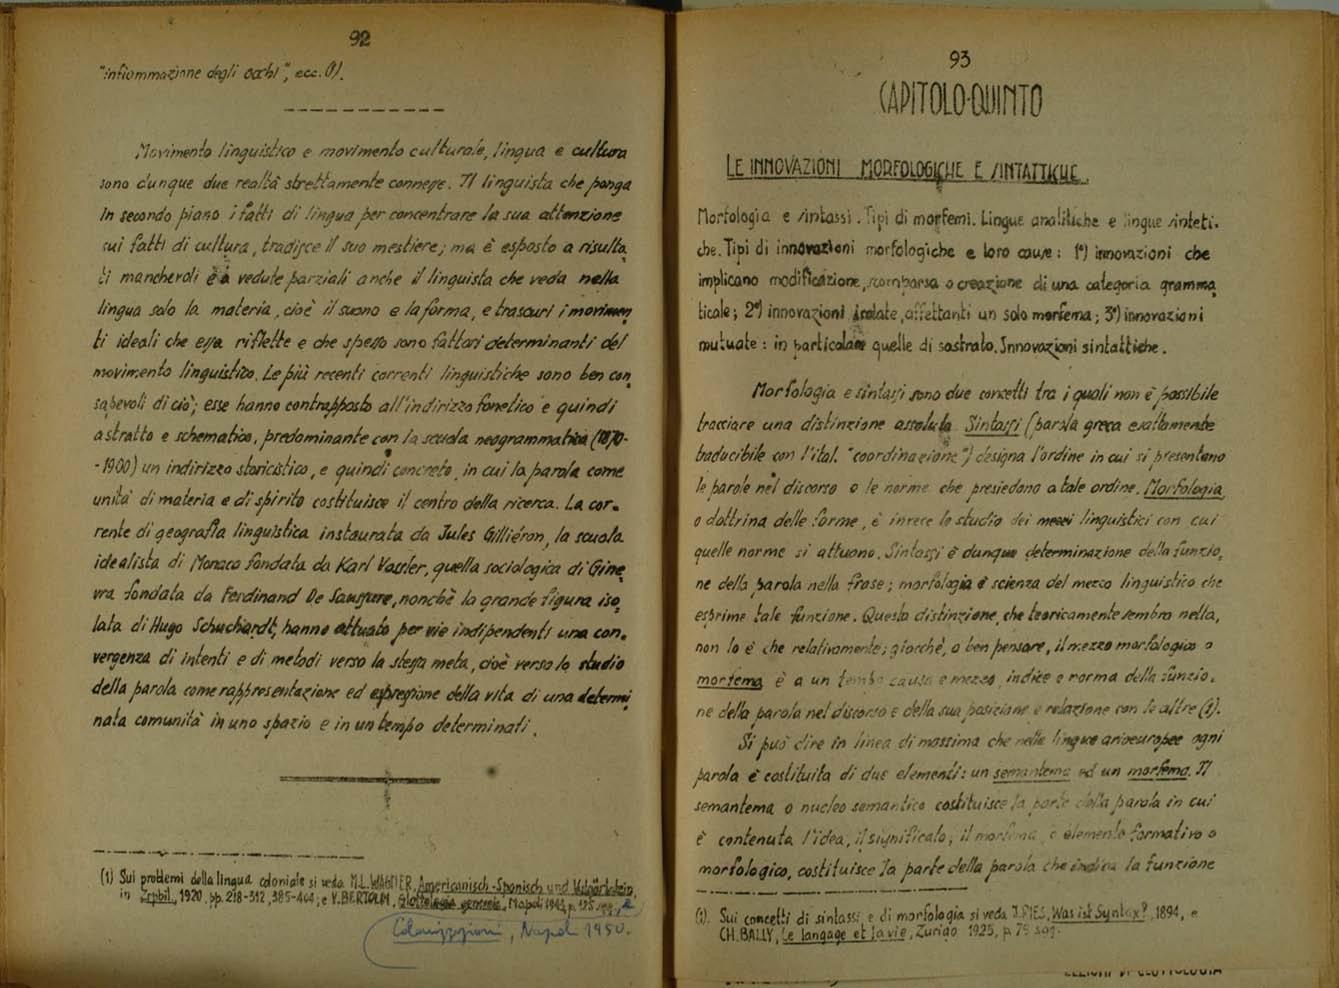 92
"infiammazione degli occhi", ecc. (1).
Movimento linguistico e movimento culturale, lingua e cultura
sono dunque due realtà strettamente connesse. Il linguista che ponga
in secondo piano i fatti di lingua per concentrare la sua attenzione
sui fatti di cultura, tradisce il suo mestiere; ma è esposto a risulta
ti manchevoli e a vedute parziali anche il linguista che veda nella
lingua solo la materia, cioè il suono e la forma, e trascuri i movimen
ti ideali che essa riflette e che spesso sono fattori determinanti del
movimento linguistico. Le più recenti correnti linguistiche sono ben con
sapevoli di ciò; esse hanno contrapposto all'indirizzo fonetico e quindi
astratto e schematico, predominante con la scuola neogrammatica (1870-
-1900) un indirizzo storicistico, e quindi concreto, in cui la parola come
unità di materia e di spirito costituisce il centro della ricerca. La cor-
rente di geografia linguistica instaurata da Jules Gilliéron, la scuola
idealista di Monaco fondata da Karl Vossler, quella sociologica di Gine
vra fondata da Ferdinand De Saussure, nonchè la grande figura iso
lata di Hugo Schuchardt, hanno attuato per vie indipendenti una con-
vergenza di intenti e di metodi verso la stessa meta, cioè verso lo studio
della parola come rappresentazione ed espressione della vita di una determi
nata comunità in uno spazio e in un tempo determinati.
(1) Sui problemi della lingua coloniale si veda M.L. WAGNER, Americanisch-Spanisch und Vulgärlatein,
in 1920, pp. 218-312, 385-404; e V. BERTOLDI, Glottologia generale, Napoli 1943, p. 125 sgg., e
Colonizzazioni, Napoli 1950.
93
CAPITOLO QUINTO
LE INNOVAZIONI MORFOLOGICHE E SINTATTICHE.
Morfologia e sintassi. Tipi di morfemi. Lingue analitiche e lingue sinteti-
che. Tipi di innovazioni morfologiche e loro cause: 1°) innovazioni che
implicano modificazione, scomparsa o creazione di una categoria gramma
ticale; 2°) innovazioni isolate, affettanti un solo morfema; 3°) innovazioni
mutuate: in particolare quelle di sostrato. Innovazioni sintattiche.
Morfologia e sintassi sono due concetti tra i quali non è possibile
tracciare una distinzione assoluta. Sintassi (parola greca esattamente
traducibile con l'ital. "coordinazione") designa l'ordine in cui si presentano
le parole nel discorso o le norme che presiedono a tale ordine. Morfologia,
o dottrina delle forme, è invece lo studio dei mezzi linguistici con cui
quelle norme si attuano. Sintassi è dunque determinazione della funzio,
ne della parola nella frase; morfologia è scienza del mezzo linguistico che
esprime tale funzione. Questa distinzione, che teoricamente sembra netta,
non lo è che relativamente; giacchè, a ben pensare, il mezzo morfologico o
morfema è a un tempo causa e mezzo, indice e norma della funzio-
ne della parola nel discorso e della sua posizione e relazione con le altre (1).
Si può dire in linea di massima che nelle lingue arioeuropee ogni
parola è costituita di due elementi: un semantema ed un morfema. Il
semantema o nucleo semantico costituisce la parte della parola in cui
è contenuta l'idea, il significato; il morfema, o elemento formativo o
morfologico, costituisce la parte della parola che indica la funzione
(1). Sui concetti di sintassi e di morfologia si veda J. RIES, Was ist Syntax?, 1894, e
CH. BALLY, Le langage et la vie, Zurigo 1925, p. 79 sgg.
LEZIONI DI GLOTTOLOGIA